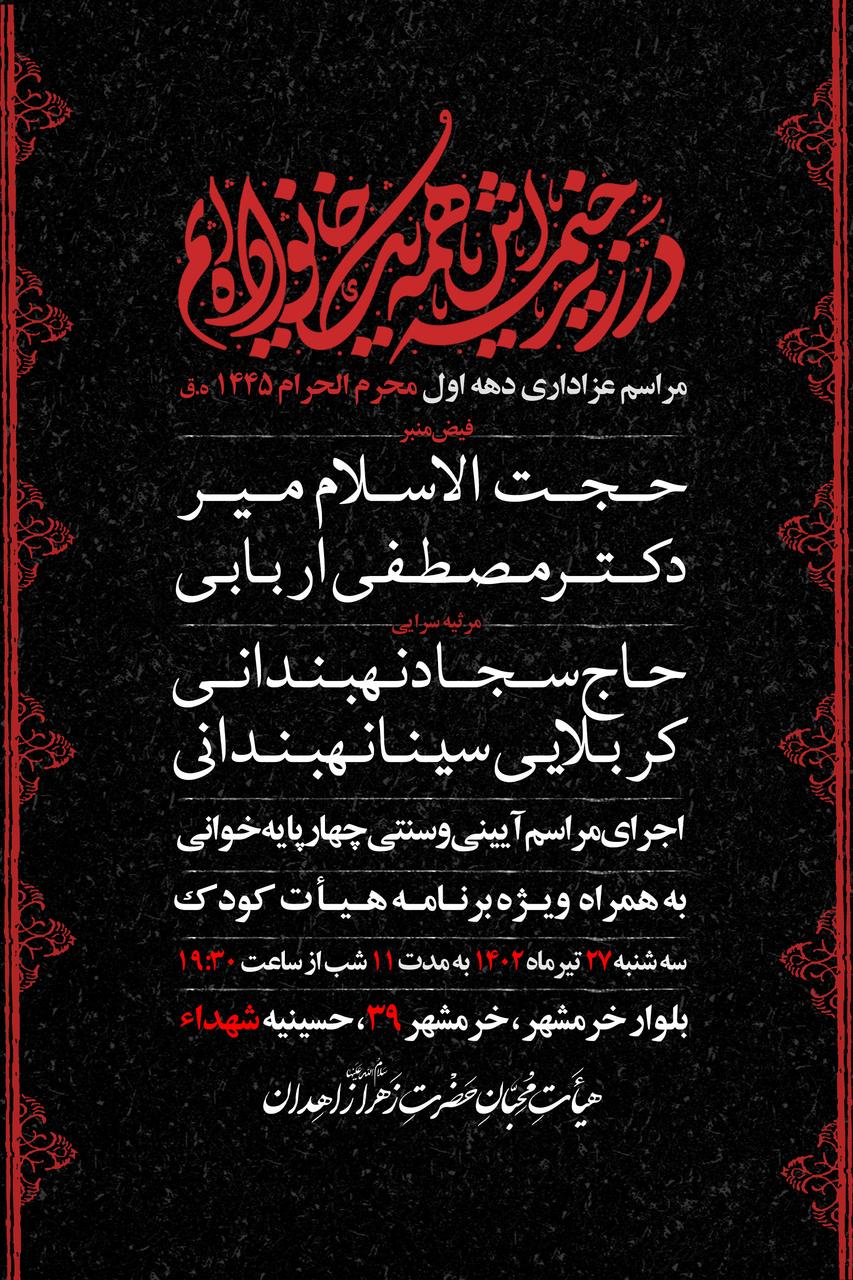 در زیر خیمه‌اش همه یک خانواده‌ایم
مراسم عزاداری دهه اول محرم الحرام ۱۴۴۵ ه.ق
فیض منبر
حجت الاسلام میر
دکتر مصطفی اربابی
مرثیه سرایی
حاج سجاد نهبندانی
کربلایی سینا نهبندانی
اجرای مراسم آیینی و سنتی چهارپایه خوانی
به همراه ویژه برنامه هیأت کودک
سه شنبه ۲۷ تیر ماه ۱۴۰۲ به مدت ۱۱ شب از ساعت ۱۹:۳۰
بلوار خرمشهر، خرمشهر ۳۹، حسینیه شهداء
هیأتِ مُحِبّانِ حَضْرتِ زَهرا سلام الله علیها زاهدان